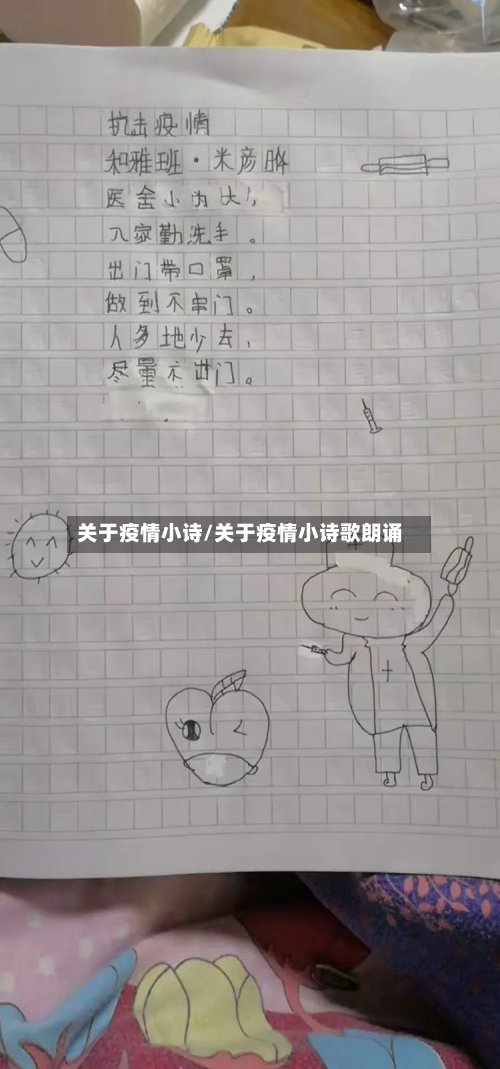 抗击疫情
和雅班·米彦
医舍小为大！，
入家勤洗手。
出门带口罩，
做到不串门。
人多地少去，
尽量不出门。
关于疫情小诗/关于疫情小诗歌朗诵